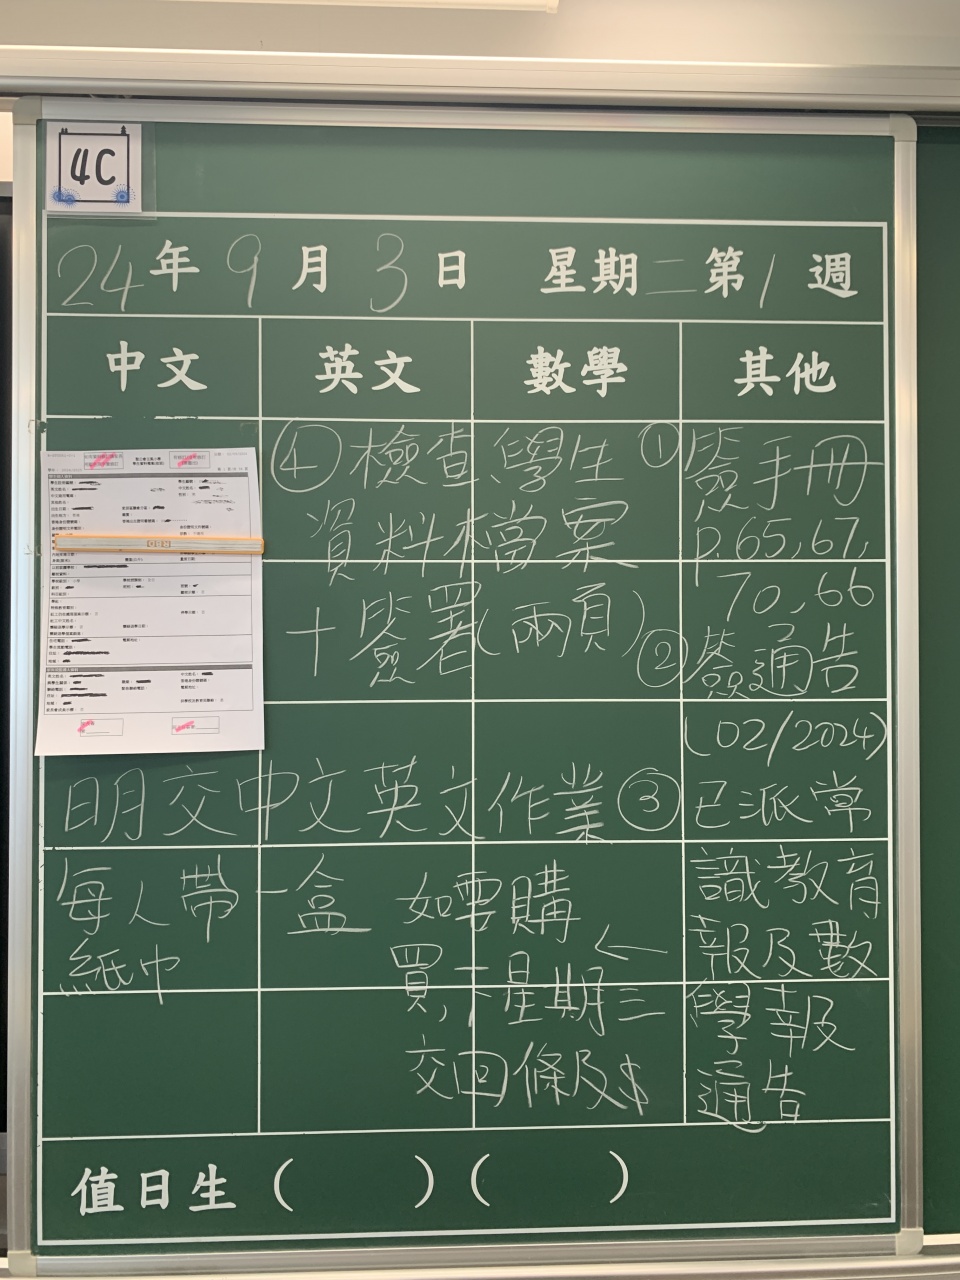 4C
24年9月3日 星期二第1週
中文 英文 數學 其他
①簽手冊
p.65,67,
70,66
②簽通告
(02/2024)
③已派常
識教育
報及數
學報
通告
← 如要購
買,下星期三
交回條及$
④檢查學生
資料檔案
+簽署(兩頁)
明交中文英文作業
每人帶一盒
紙巾
值日生( )( )